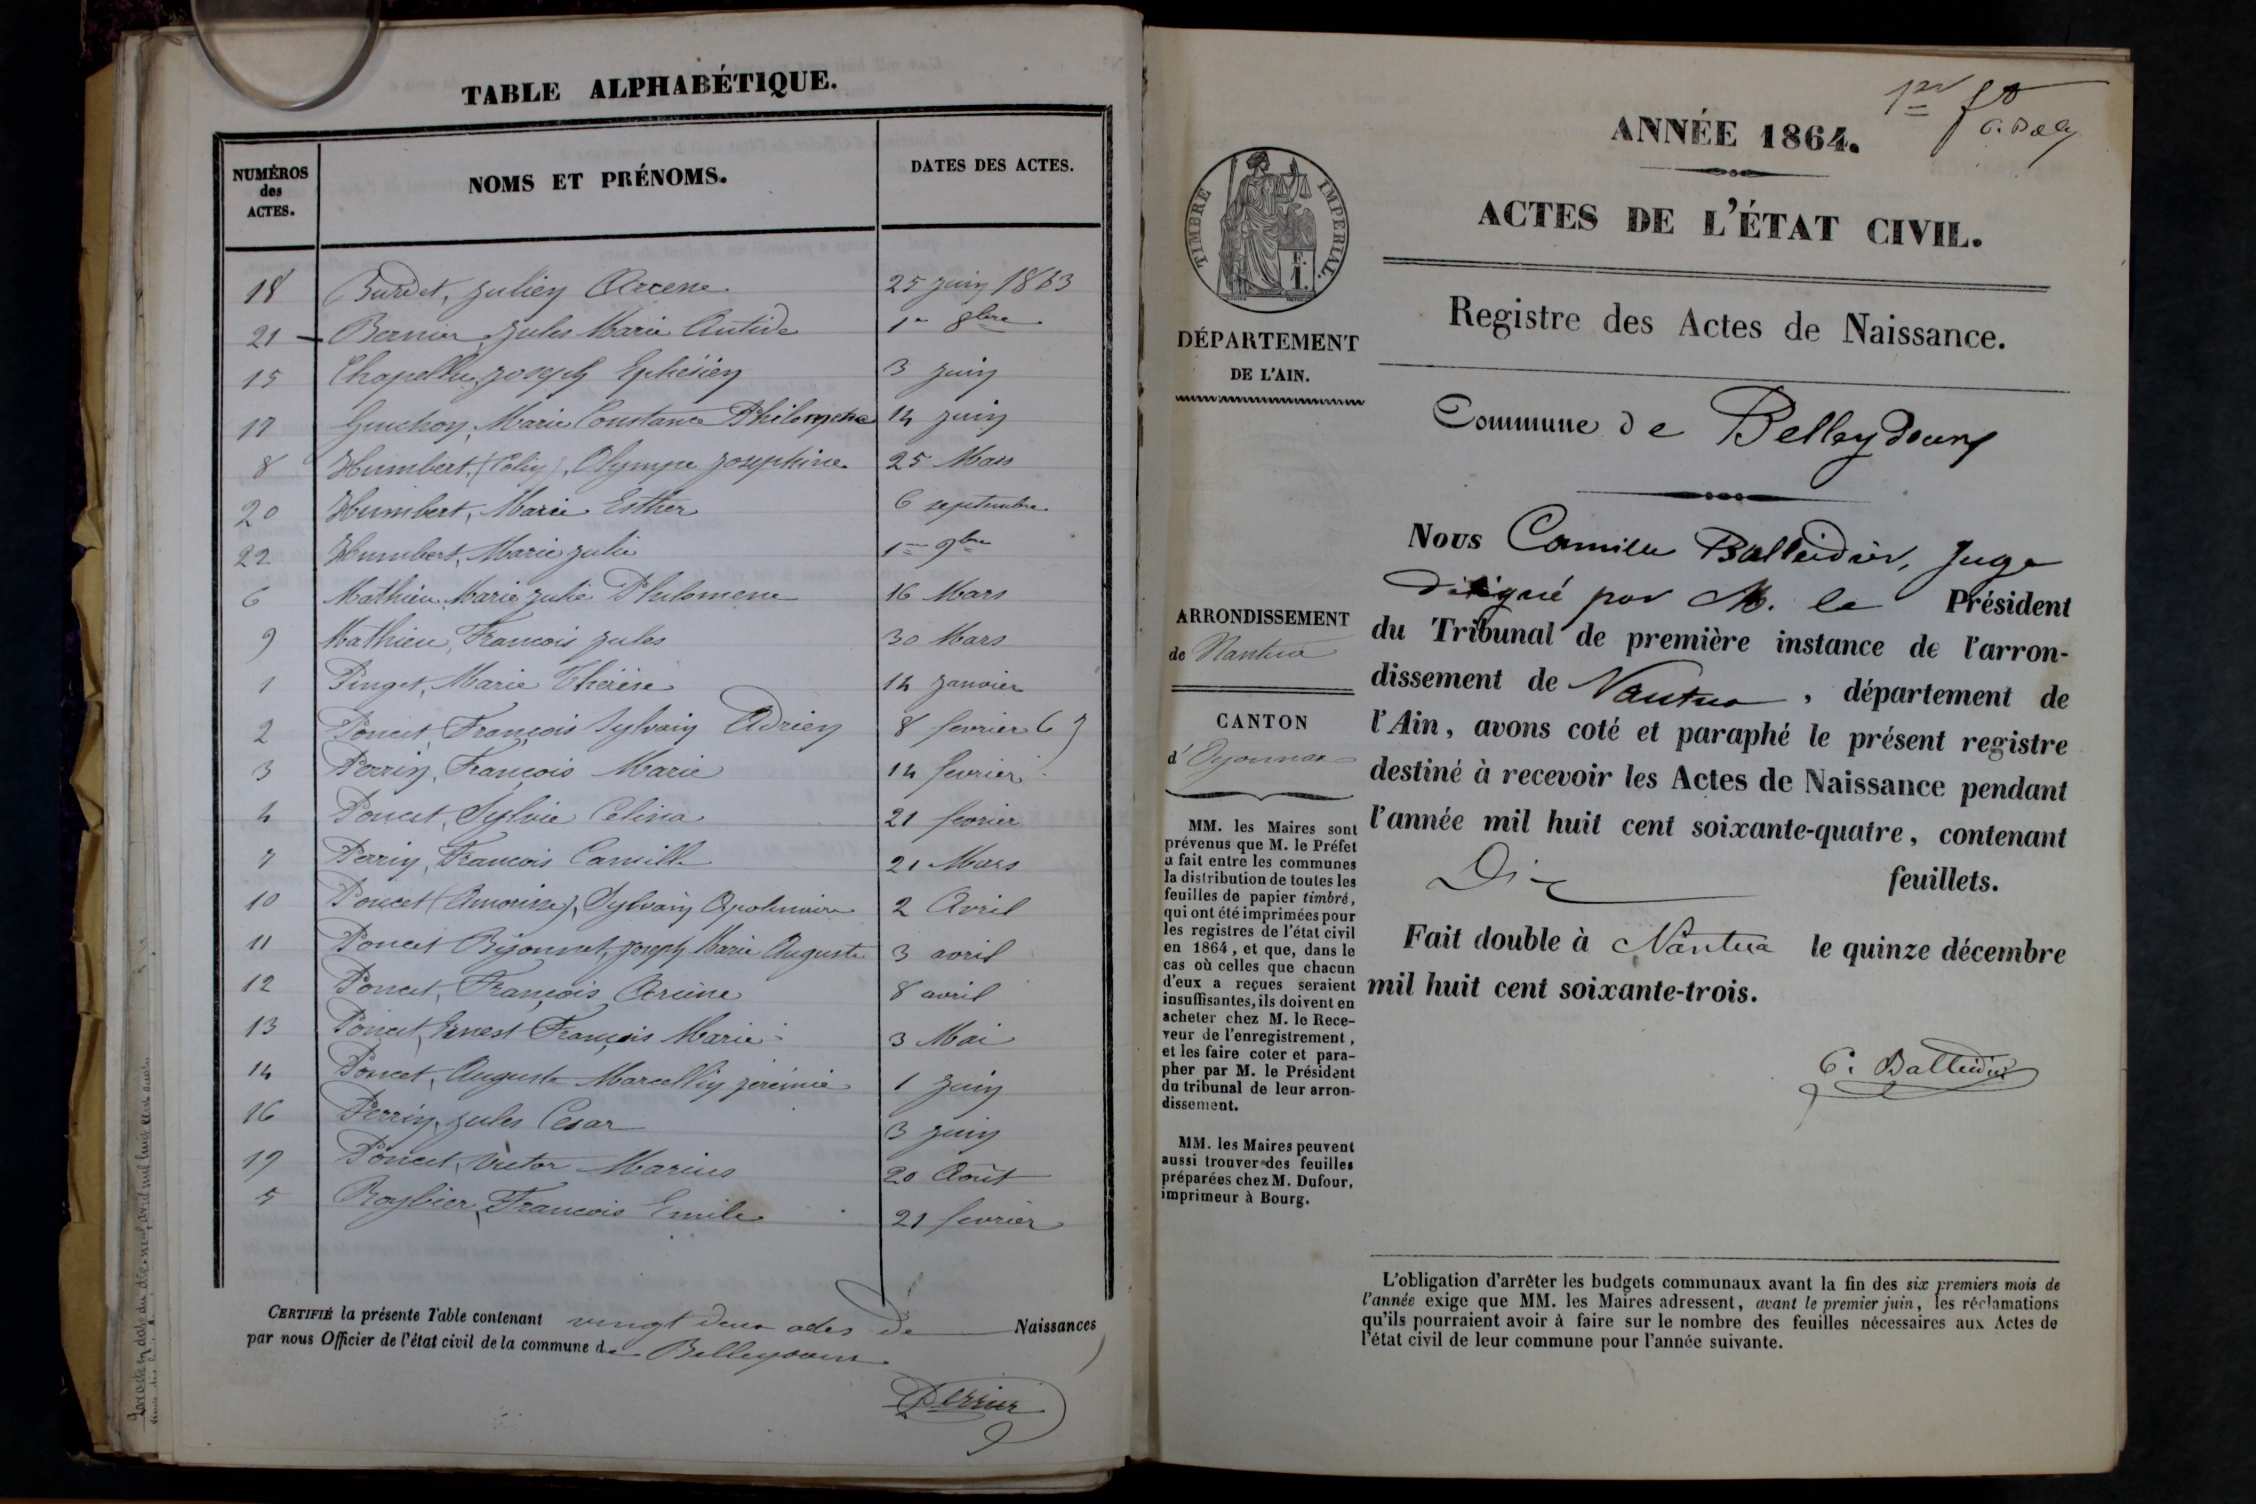 TABLE ALPHABÉTIQUE.
NUMÉROS des ACTES.
NOMS ET PRÉNOMS.
DATES DES ACTES.
18 Burdet, Julien Arcene 25 juin 1863
21 Bernier, Jules Marie Antide 1er 8bre
15 Chapellu, Joseph Ephésien 3 juin
17 Guichon, Marie Constance Philomene 14 juin
8 Humbert, Olympe Josephine 25 Mars
20 Humbert, Marie Esther 6 septembre
22 Humbert, Marie Julie 1er 9bre
6 Mathieu Marie Julie Philomene 16 Mars
9 Mathieu, Francois Jules 30 Mars
1 Pinget, Marie Thérèse 14 janvier
2 Poncet, François Sylvain Adrien 8 fevrier
3 Perrin, François Marie 14 fevrier
4 Poncet, Sylvie Celina 21 fevrier
7 Perrin, Francois Camille 21 Mars
10 Poncet Sylvain Apolinaire 2 Avril
11 Poncet Bijonnet, Joseph Marie Auguste 3 avril
12 Poncet, François Arcène 8 avril
13 Poncet, Ernest François Marie 3 Mai
14 Poncet, Auguste Marcellin jérémie 1 Juin
16 Perrin, Jules Cesar 3 juin
19 Poncet, Victor Marius 20 Août
5 Roybier, Francois Emile 21 fevrier
CERTIFIÉ la présente Table contenant vingt deux actes de Naissances
par nous Officier de l'état civil de la commune de Belleydoux
Perrier
1er fo
ANNÉE 1864.
ACTES DE L'ÉTAT CIVIL.
TIMBRE IMPERIAL.
1 F.
Registre des Actes de Naissance.
DÉPARTEMENT
DE L'AIN.
Commune de Belleydoux
Nous Camille Balleidier, Juge
délégué par M. le Président
du Tribunal de première instance de l'arron-
dissement de Nantua, département de
l'Ain, avons coté et paraphé le présent registre
destiné à recevoir les Actes de Naissance pendant
l'année mil huit cent soixante-quatre, contenant
Dix feuillets.
Fait double à Nantua le quinze décembre
mil huit cent soixante-trois.
C. Balleidier
ARRONDISSEMENT
de Nantua
CANTON
d'Oyonnax
MM. les Maires sont
prévenus que M. le Préfet
a fait entre les communes
la distribution de toutes les
feuilles de papier timbré,
qui ont été imprimées pour
les registres de l'état civil
en 1864, et que, dans le
cas où celles que chacun
d'eux a reçues seraient
insuffisantes, ils doivent en
acheter chez M. le Rece-
veur de l'enregistrement,
et les faire coter et para-
pher par M. le Président
du tribunal de leur arron-
dissement.
MM. les Maires peuvent
aussi trouver des feuilles
préparées chez M. Dufour,
imprimeur à Bourg.
L'obligation d'arrêter les budgets communaux avant la fin des six premiers mois de
l'année exige que MM. les Maires adressent, avant le premier juin, les réclamations
qu'ils pourraient avoir à faire sur le nombre des feuilles nécessaires aux Actes de
l'état civil de leur commune pour l'année suivante.